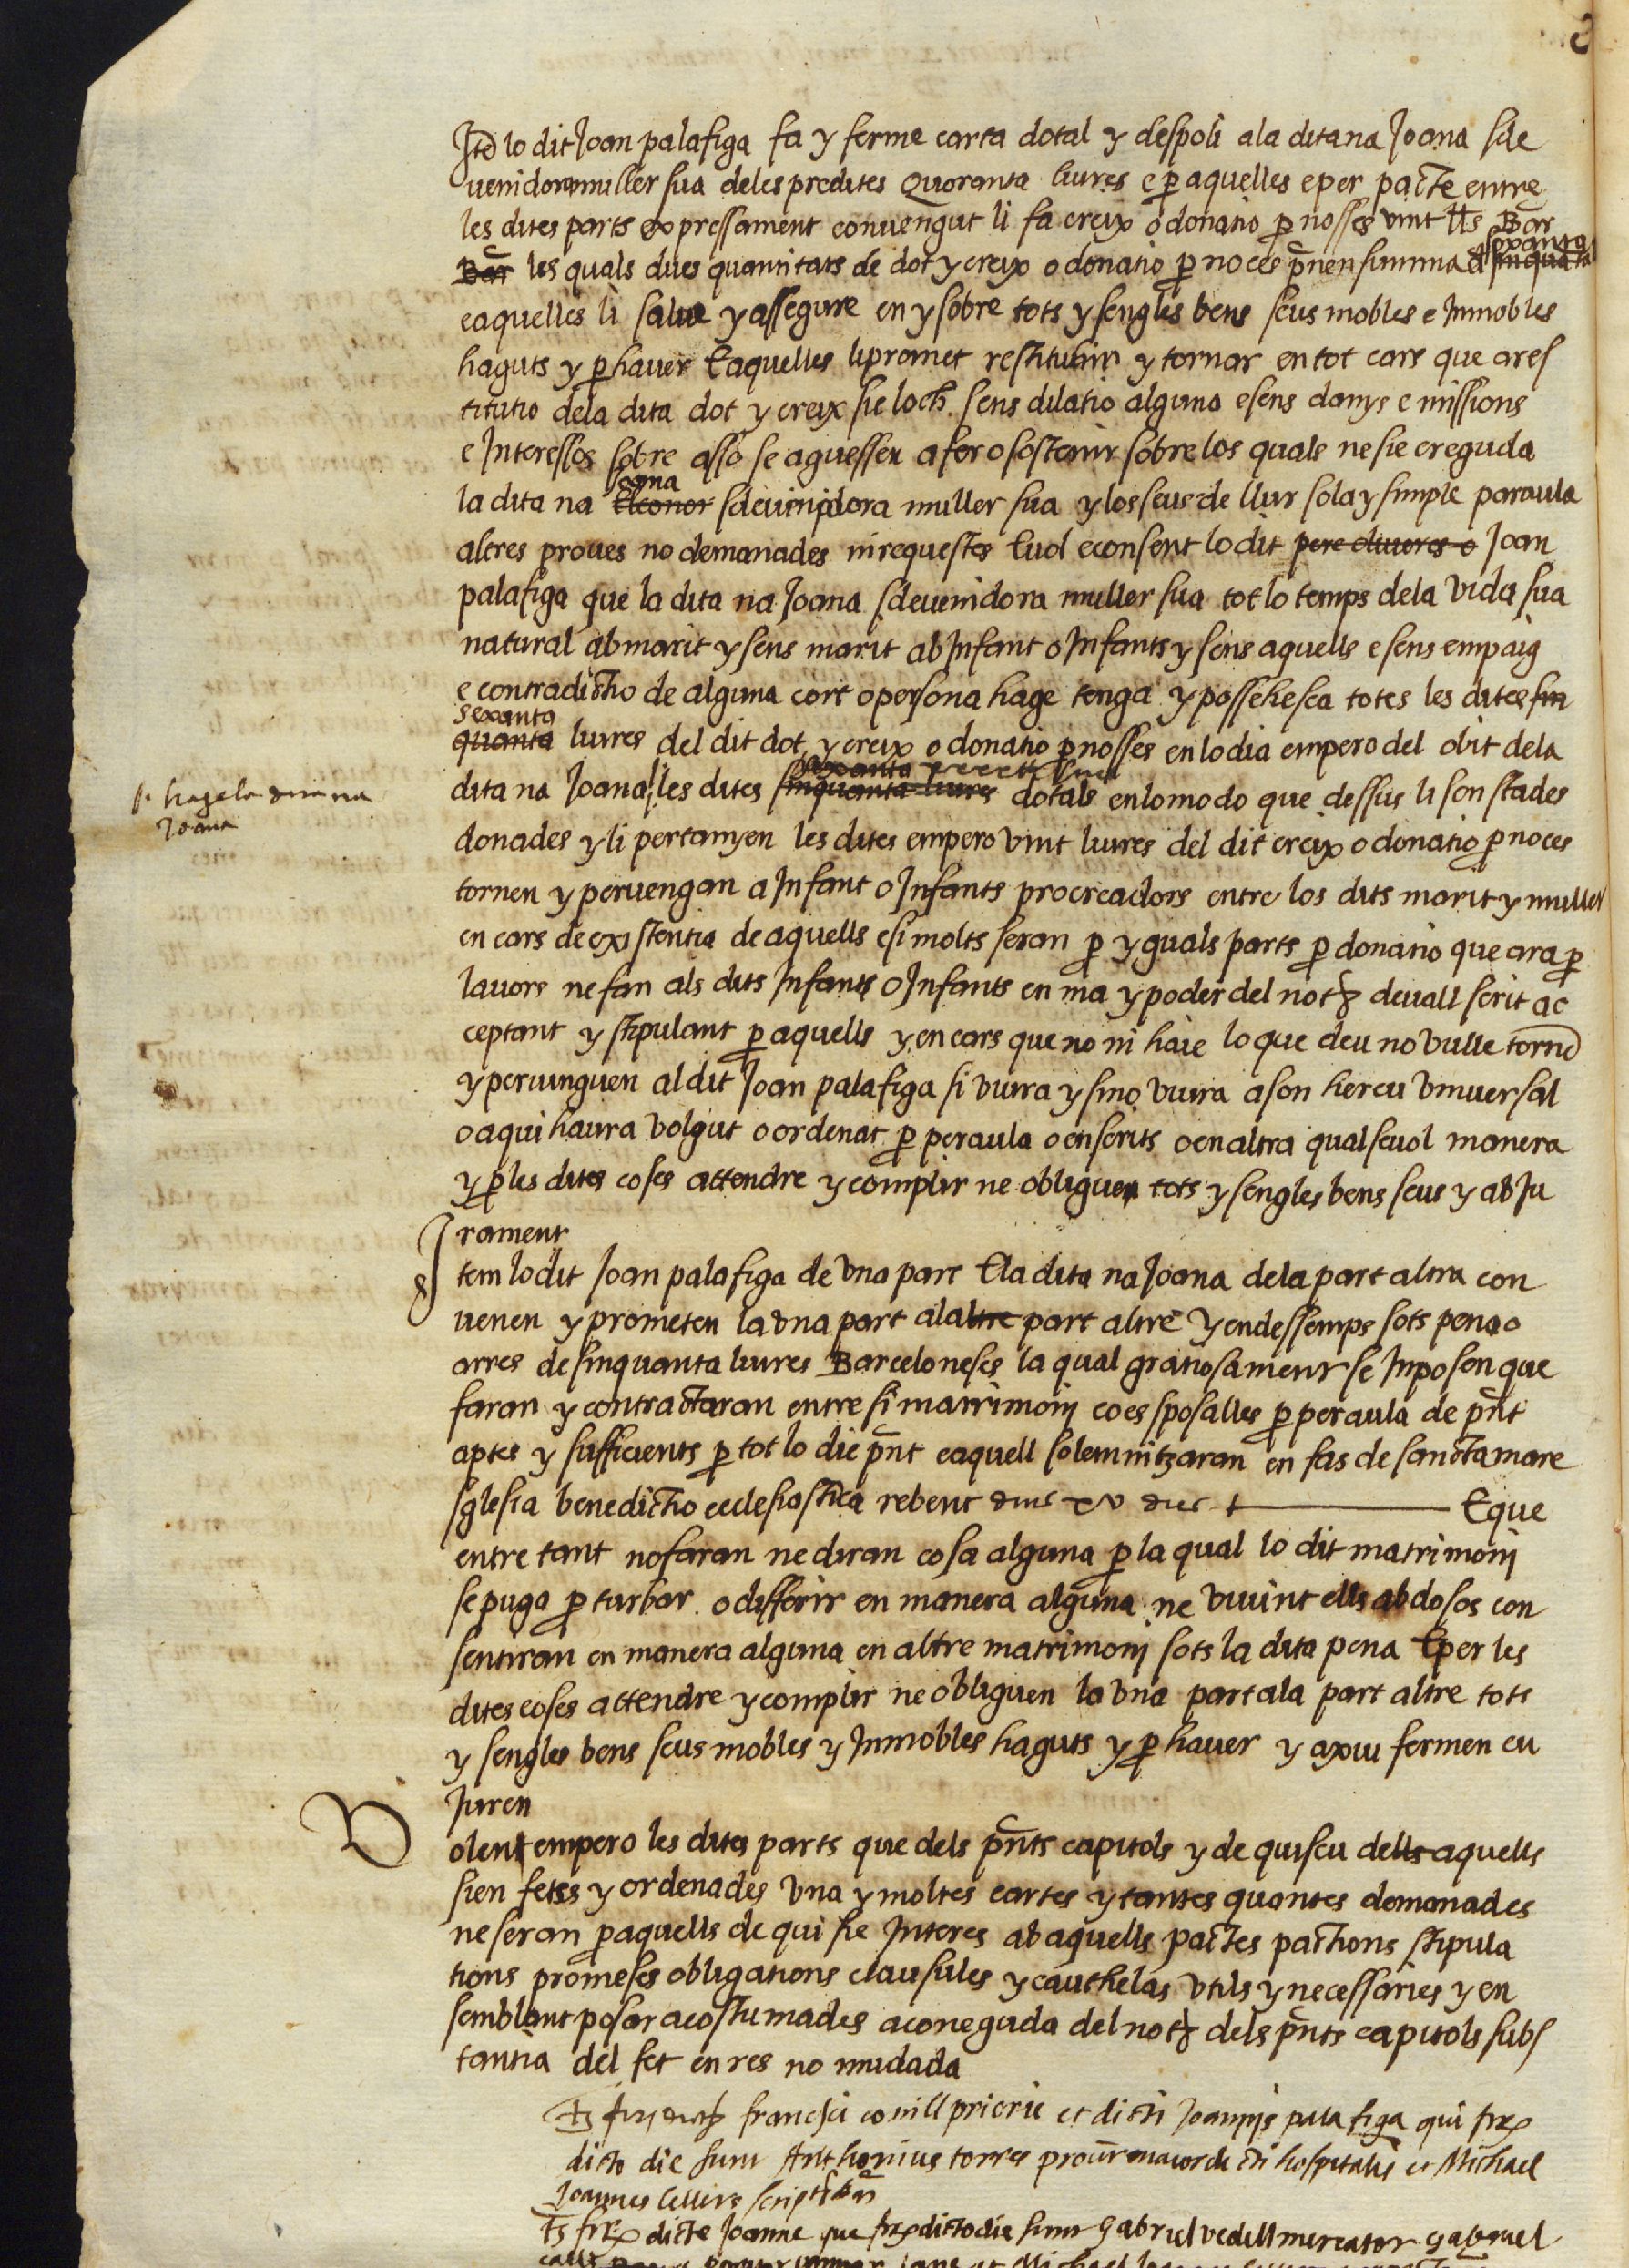 Itē lo dit Joan palafiga fa y ferme carta dotal y despoli ala dita na Joana sde
uenidora muller sua deles predites Quoranta liures e p aquelles e per pacte entre
les dites parts expressament conuengut li fa creix o donatio p nosses vint lls Bar
Bar les quals dues quantitats de dot y creix o donatio p noces pnen summa d sinquata sexanta
e aquelles li salue y assegure en y sobre tots y sengles bens seus mobles e Inmobles
haguts y p hauer E aquelles li promet restituhir y tornar en tot cars que a res
titutio dela dita dot y creix sie loch sens dilatio alguna e sens danys e missions
e Interessos sobre asso se aguessen a fer o sostenir sobre los quals ne sie creguda
la dita na Elconor Joana sdeuenidora muller sua y los seus de llur sola y simple paraula
altres proues no demanades ni requestes E vol e consent lo dit pere oliueres o Joan
palafiga que la dita na Joana sdeuenidora muller sua tot lo temps dela vida sua
natural ab marit y sens marit ab Infant o Infants y sens aquells e sens empaig
e contradictio de alguna cort o persona hage tenga y possehesca totes les dites sin
quanta sexanta liures del dit dot y creix o donatio p nosses en lo dia empero del obit dela
dita na Joana les dites sinquanta liures dotals en lo modo que dessus li son stades
hage la dita na
Joana
donades y li pertanyen les dites empero vint liures del dit creix o donatio p noces
tornen y peruengan a Infant o Infants procreadors entre los dits marit y muller
en cars de existentia de aquells e si molts seran p yguals parts p donatio que ara p
lauors ne fan als dits Infants o Infants en ma y poder del not deuall scrit ac
ceptant y stipulant p aquells y en cars que no ni haie lo que deu no vulle tornē
y peruinguen al dit Joan palafiga si viura y sino viura a son hereu vniuersal
o a qui haura volgut o ordenat p peraula o en scrits o en altra qualseuol manera
y p les dites coses attendre y complir ne obliguen tots y sengles bens seus y ab Ju
rament
Item lo dit Joan palafiga de vna part E la dita na Joana dela part altra con
uenen y prometen la vna part ala ltre part altre y endessemps sots pena o
arres de sinquanta liures Barceloneses la qual gratiosament se Inposen que
faran y contractaran entre si matrimonj co es sposalles p peraula de pnt
aptes y sufficients p tot lo die pnt e aquell solemnitzaran en fas de sancta mare
sglesia benedictio ecclesiastica rebent dins xv dies E que
entre tant no faran ne diran cosa alguna p la qual lo dit matrimonj
se puga p turbar o differir en manera alguna ne viuint ells abdosos con
sentiran en manera alguna en altre matrimonj sots la dita pena E per les
dites coses attendre y complir ne obliguen la vna part ala part altre tots
y sengles bens seus mobles y Inmobles haguts y p hauer y axiu fermen eu
Juren
Volent empero les dites parts que dels pnts capitols y de quiscu dells aquells
sien fetes y ordenades vna y moltes cartes y tantes quantes demanades
ne seran p aquells de qui sie Interes ab aquells pactes pactions stipula
tions promeses obligations clausules y cauthelas vtils y necessaries y en
semblant posar acostumades a coneguda del not dels pnts capitols subs
tantia del fet en res no mudada
francisci conill prioris et dicti Joannis palafiga qui
dicto die sunt Anthonius torres dicti hospitalis et Michael
Joannes cellers
dicte Joanne que dicto die sunt Gabriel vedell mercator Gabriel